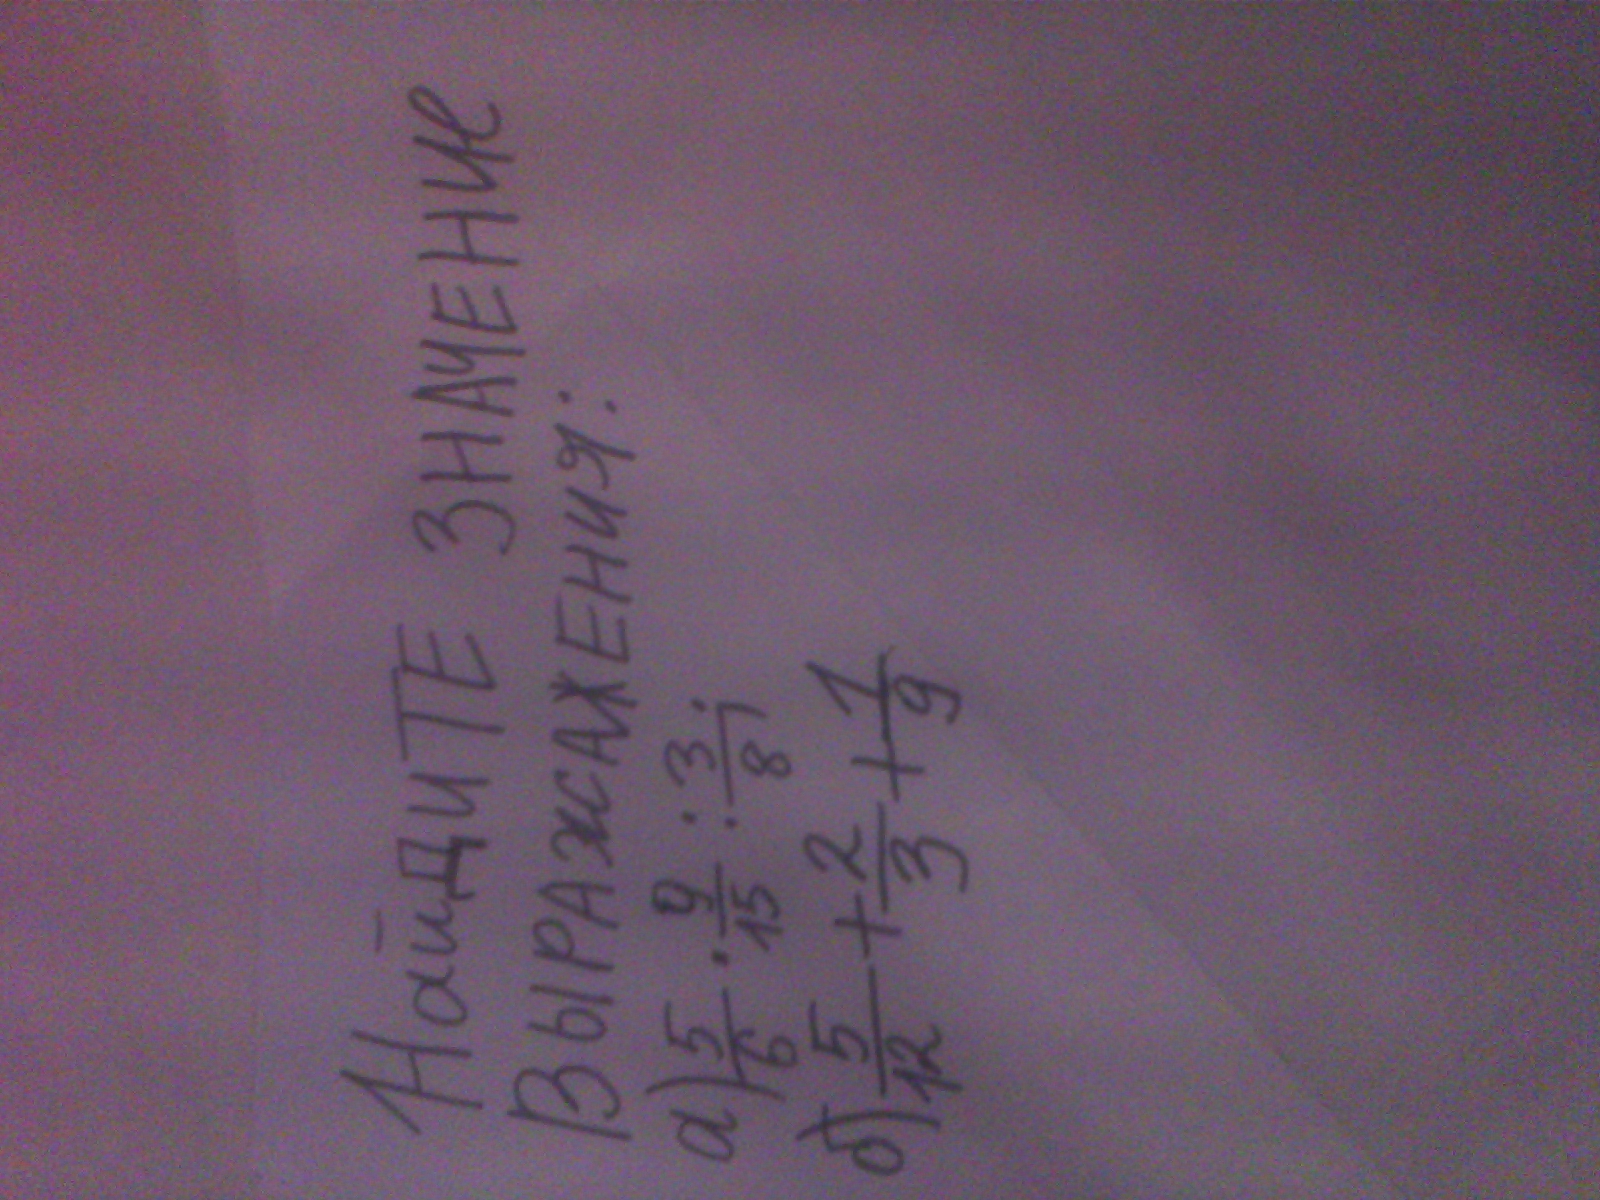 Найдите значение
выражения:
а) 5/6 · 9/15 : 3/8;
б) 5/12 + 2/3 + 1/9